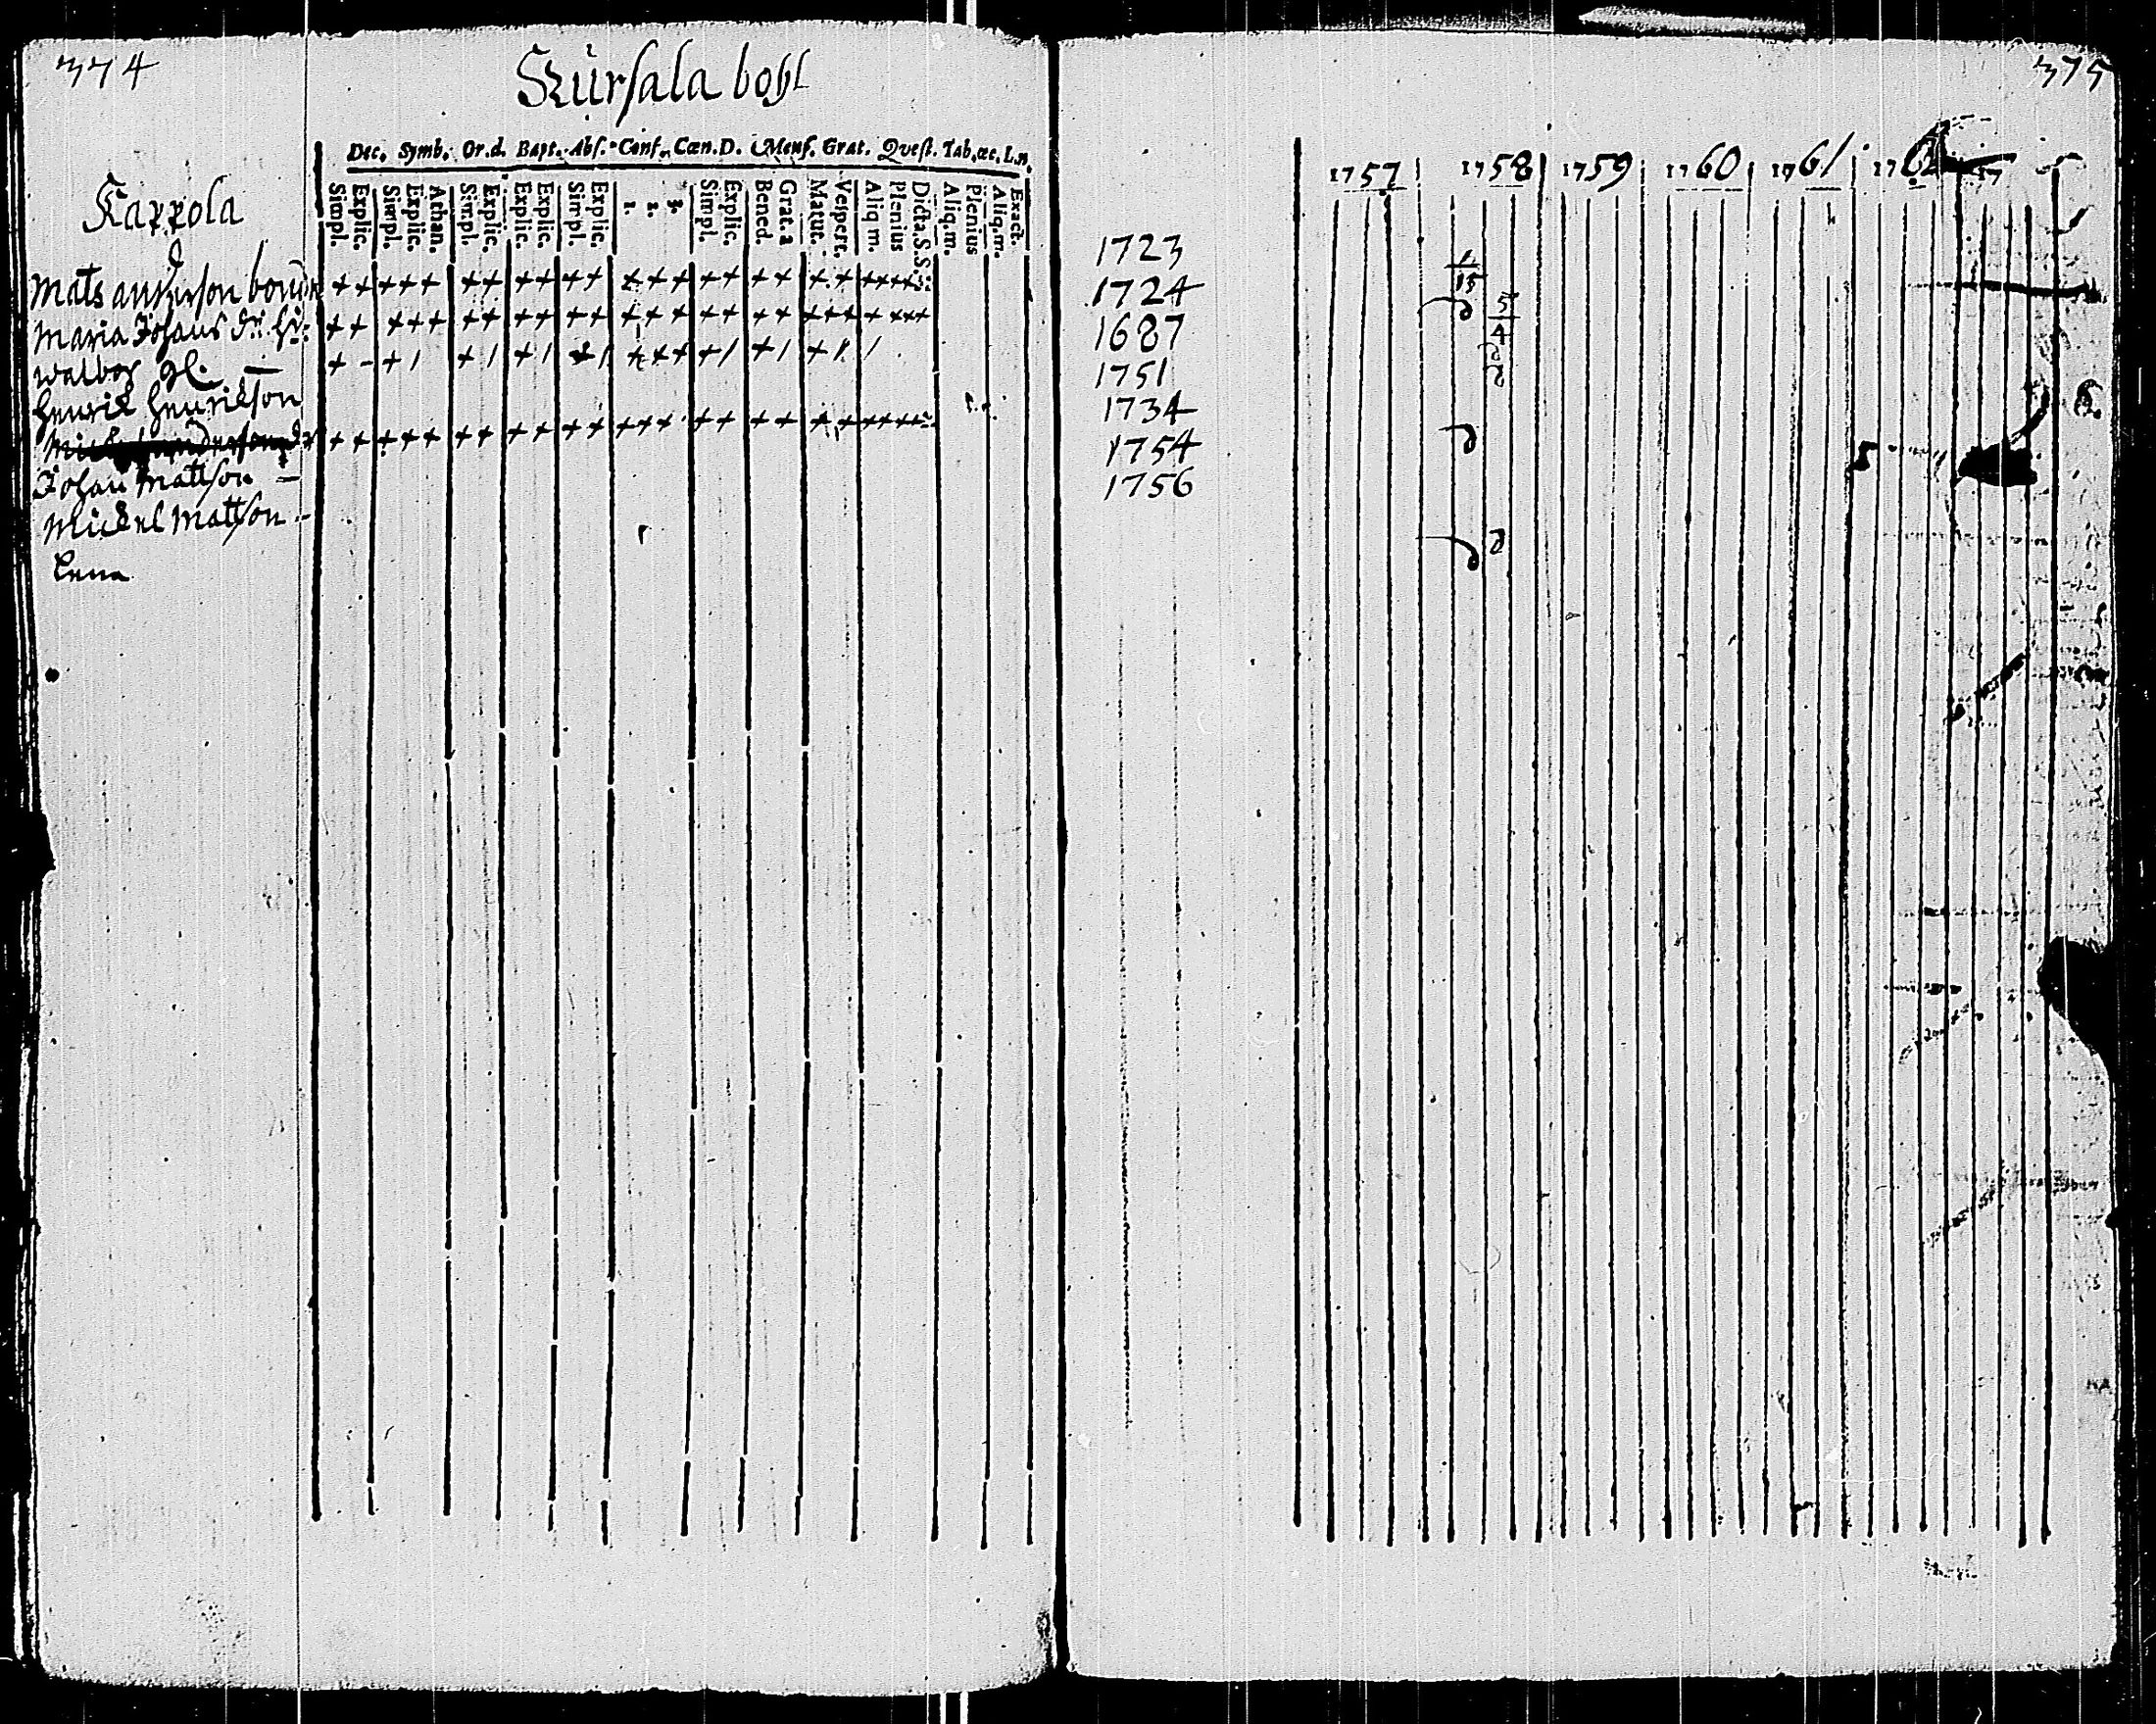 374
Kursala bohl
Dec. Symb. Or.d. Bapt. Abs. Conf. Cœn.D. Mens. Grat. Quest. Tab.œc. L.n.
Simpl. Explic. Simpl. Explic. Athan. Simpl. Explic. Explic. Explic. Simpl. Explic. 1. 2. 3. Simpl. Explic. Bened. Grat. a Matut. Vespert. Aliq m. Plenius Dicta.S.S. Aliq.m. Plenius Aliq.m. Exact.
Kappola
Mats anderson bonde
Maria Johans dr. hu:
walbor
henrik henrikson
Johan Mattson –
Mickel Mattson –
Lena
375
1757 1758 1759 1760 1761
1723
1724
1687
1751
1734
1754
1756
1
15
5
4